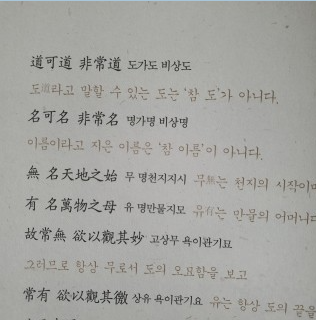 道可道 非常道 도가도 비상도
도道라고 말할 수 있는 도는 '참 도'가 아니다.
名可名 非常名 명가명 비상명
이름이라고 지은 이름은 '참 이름'이 아니다.
無 名天地之始 무 명천지지시 무無는 천지의 시작이며
有 名萬物之母 유 명만물지모 유有는 만물의 어머니다
故常無 欲以觀其妙 고상무 욕이관기묘
그러므로 항상 무로서 도의 오묘함을 보고
常有 欲以觀其徼 상유 욕이관기요 유는 항상 도의 끝을